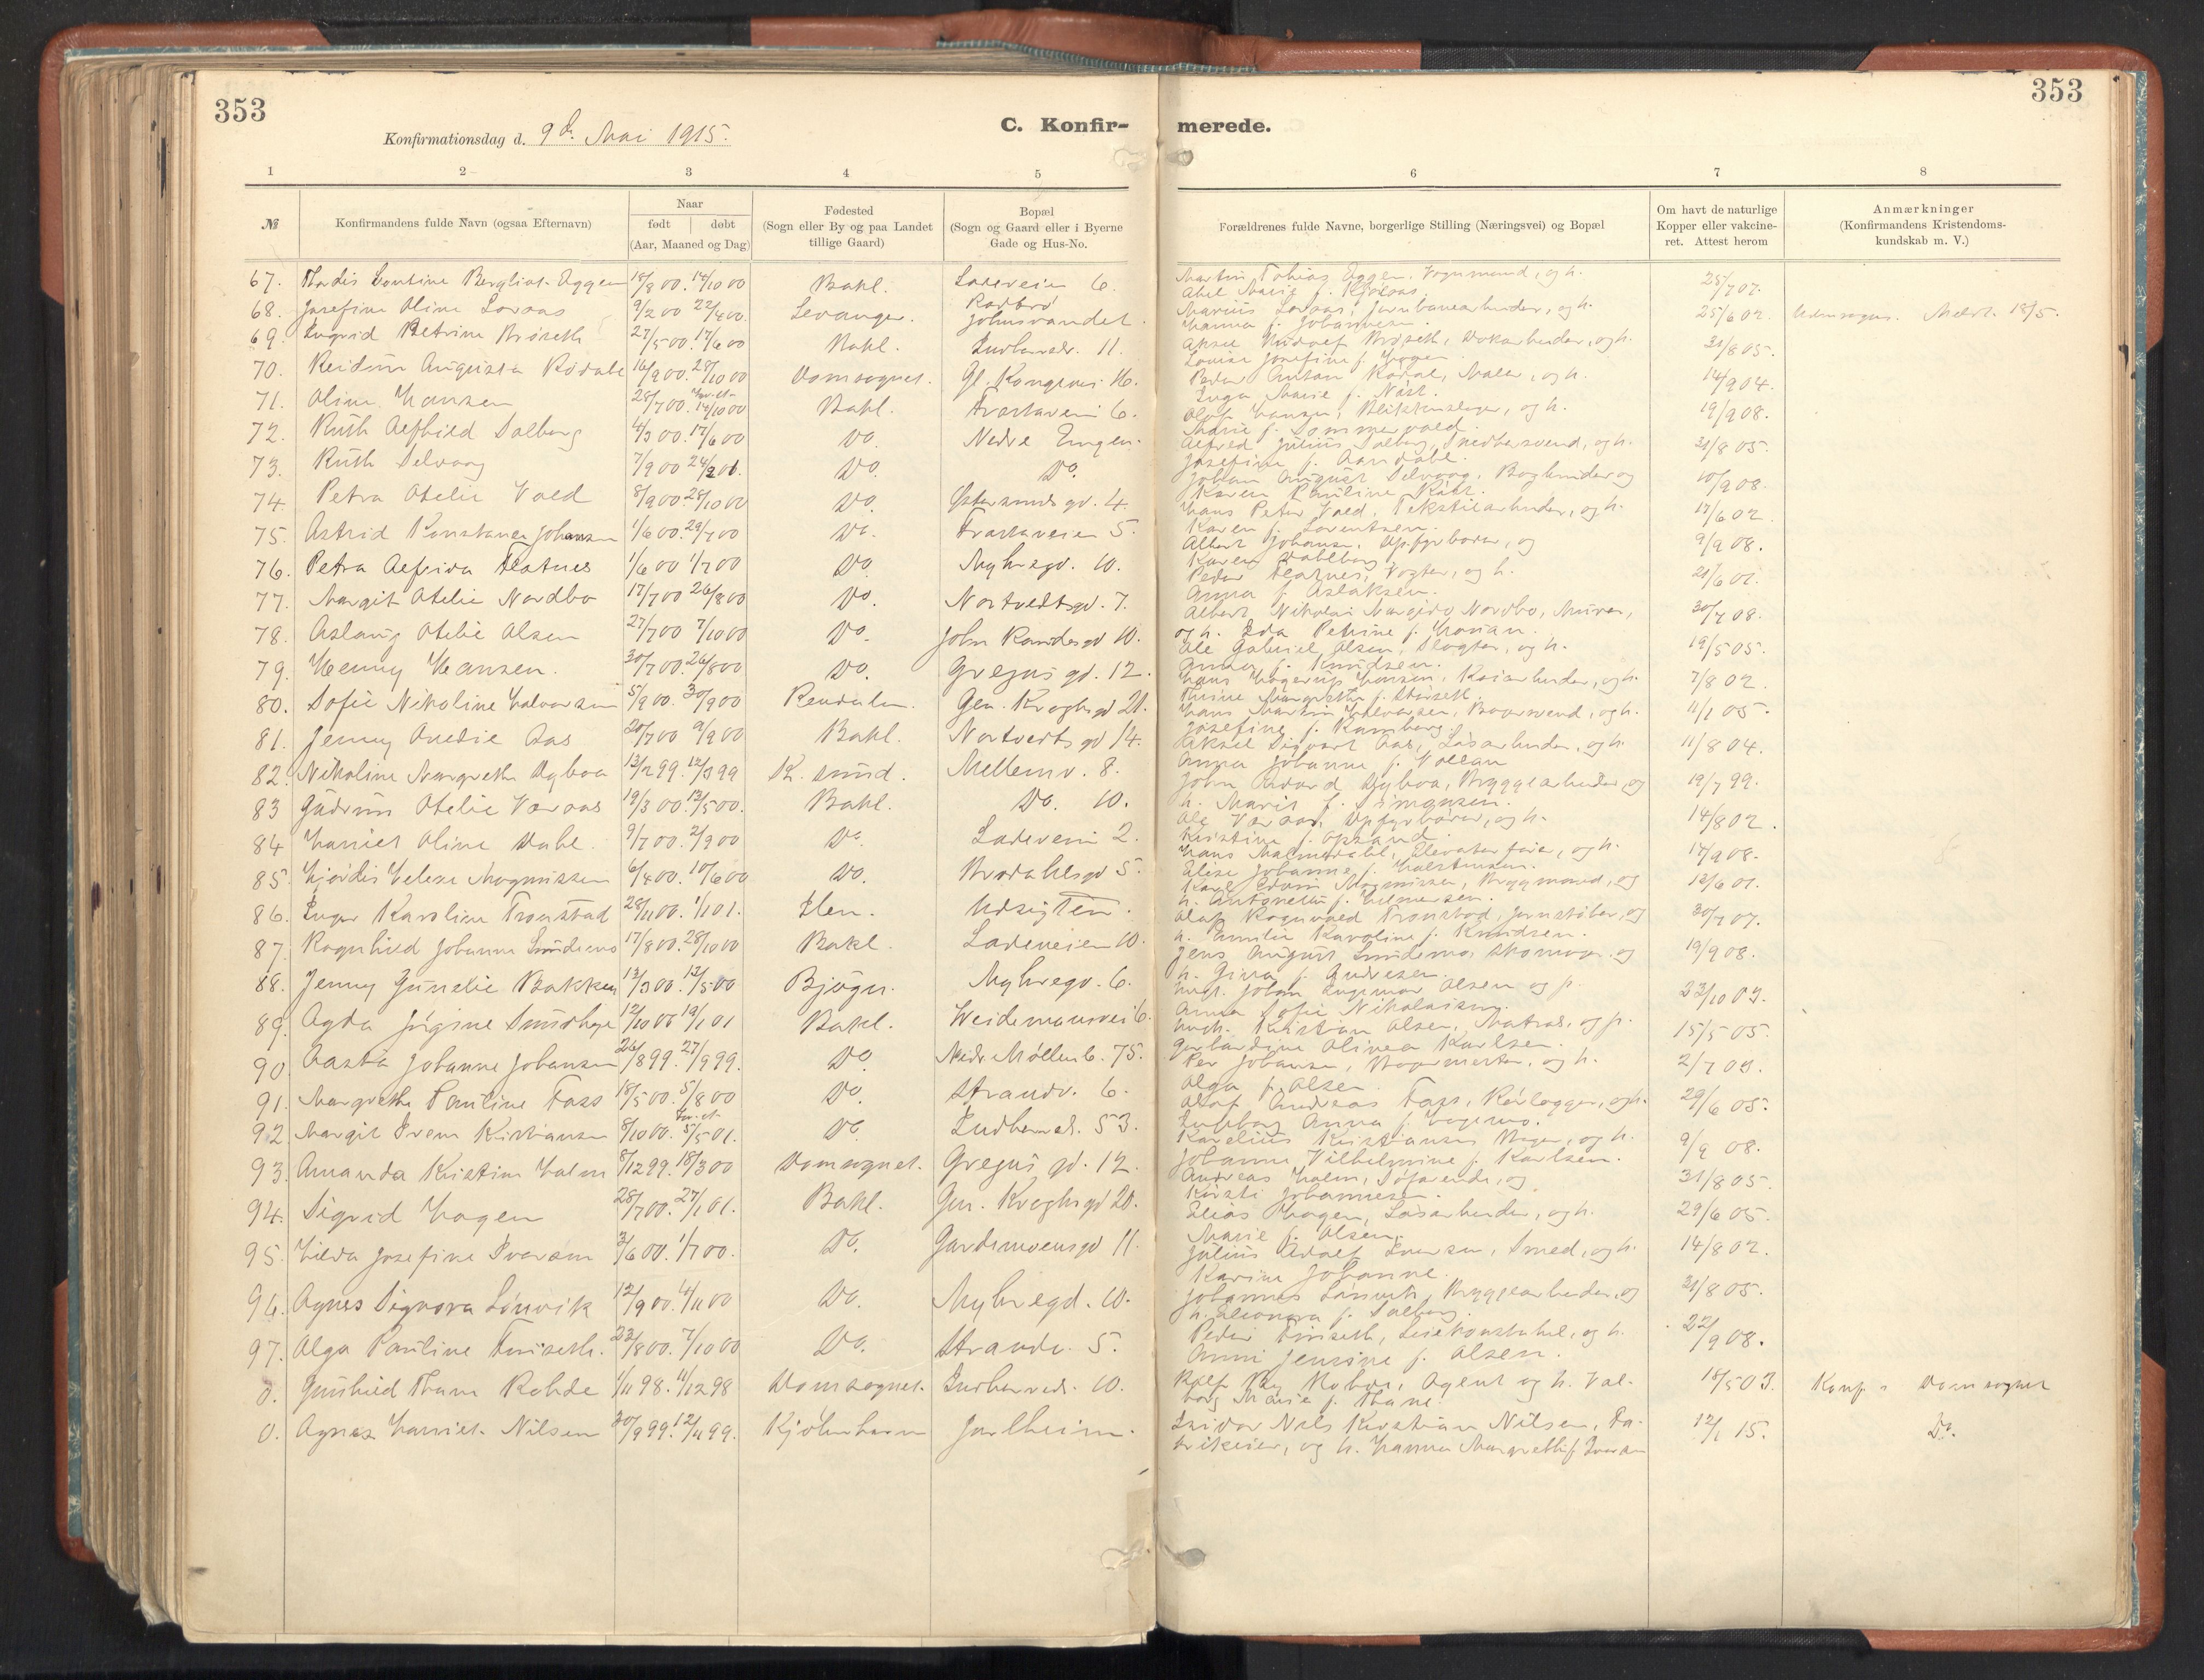 353
Konfirmationsdag d. 9d. Mai 1915.
C. Konfir-
merede.
353
1 2 3 4 5 6 7 8
№ Konfirmandens fulde Navn (ogsaa Efternavn) Naar født døbt (Aar, Maaned og Dag) Fødested (Sogn eller By og paa Landet tillige Gaard) Bopæl (Sogn og Gaard eller i Byerne Gade og Hus-No. Forældrenes fulde Navne, borgerlige Stilling (Næringsvei) og Bopæl Om havt de naturlige Kopper eller vakcine- ret. Attest herom Anmærkninger (Konfirmandens Kristendoms- kundskab m. V.)
67. Bergliot Eggen 18/8 00. 14/10 00 Bakl. Ladeveien 6. Martin Tobias Eggen, Vognmand, og h. 25/7 07.
68. Josefine Oline Loraas 9/2 00 22/4 00. Levanger. Johnsvandet. Marius Loraas, Jernbanearbeider, og h. Hanna f. Johannesen. 25/6 02. Udensogns. 18/5.
69. Ingrid Petrine Brøseth 27/5 00. 17/6 00 Bakl. Indherredsv. 11. Aksel Rudolf Brøseth, og h. Louise Josefine f. Hagen 31/8 05.
70. Reidun Augusta Rødahl 16/9 00. 28/10 00 Domsognet. Gl. Kongevei 16. Peder Anton Rødal, Maler, og h. Inga Marie f. Näst. 14/9 04.
71. Oline Hansen 28/7 00. 14/10 00 Bakl. 6. Olaf Hansen, Blikkenslager, og h. Marie f. Sommervold. 19/9 08.
72. Ruth Alfhild Solberg 4/3 00. 17/6 00 Do. Nedre Enggn. Alfred Julius Solberg, Snedkersvend, og h. Josefine f. Aandahl. 31/8 05.
73. Ruth Selvaag 7/9 00 24/2 01. Do. Do. Johan August Selvaag, Bogbinder og Karen Pauline 10/9 08.
74. Petra Otelie Vold 8/9 00. 28/10 00 Do. Østersunds gd. 4. Hans Peter Vold, Tekstilarbeider, og h. Karen f. Lorentzen. 17/6 02.
75. Astrid Konstance Johansen 1/6 00. 29/7 00 Do. 5. Albert Johansen, Opfyrbøder, og Karen Dahlberg. 9/9 08.
76. Petra Alfrida Flatnes 1/6 00 1/7 00 Do. Myhregd. 10. Peder Flatnes, Vogter, og h. Anna f. Aslaksen. 21/6 01.
77. Margit Otelie Nordbo 17/7 00 26/8 00 Do. Nortvedtsgd. 7. Albert Nikolai Nordbo, Murer, og h. Ida Petrine f. 30/7 08.
78. Aslaug Otelie Olsen 27/7 00 7/10 00 Do. John Randesgd 10. Ole Gabriel Olsen, Slagter, og h. Anna f. Knudsen. 19/5 05.
79. Henny Hansen. 30/7 00. 26/8 00 Do. Gregus gd. 12. Hans Hansen, og h. Thrine Margrethe f. Størseth. 7/8 02.
80. Sofie Nikoline Halvorsen 5/9 00. 30/9 00 Rendalen. Gen. Kroghs gd 21. Hans Martin Halvorsen, og h. Josefine f. Ramberg. 11/1 05.
81. Jenny Ovedie Aas 20/7 00 9/9 00 Bakl. Nortvedts gd 14. Aksel Sigvart Aas, Løsarbeider, og h. Anna Johanne f. Vollan 11/8 04.
82. Nikoline Margrethe Dybva 13/2 99. 12/3 99 K. sund. Mellemv. 8. John Edvard Dybva, Bryggearbeider, og h. Marit f. Simonsen. 19/7 99.
83 Gudrun Otelie Voraas 19/3 00. 13/5 00. Bakl. Do. 10. Ole Voraas, Opfyrbøder, og h. Kristine f. Opsand. 14/8 02.
84 Harriet Oline Dahl. 9/7 00. 2/9 00 Do. Ladeveien 2. Hans Malmdahl, og h. Elise Johanne f. Halstensen. 17/9 08.
85. Hjørdis Helene Magnussen 6/4 00. 10/6 00 Do. Brodahlsgd 5. Karl Edvin Magnussen, Bryggmand, og h. Antonette f. Hilmersen. 12/6 01.
86. Inger Karoline Tronstad 28/11 00. 1/1 01. Ilen. Udsigten. Olaf Ragnvald Tronstad, Jernstøber, og h. Amilie Karoline f. Knudsen. 30/7 07.
87. Ragnhild Johanne Lundemo 17/8 00. 28/10 00 Bakl. Ladeveien 10. Jens August Lundemo, Skomager, og h. Gina f. Andresen. 19/9 08.
88. Jenny Gunelie Bakken 13/3 00. 13/5 00 Bjugn. Myhregd. 6. Johan Ingemar Olsen og p. Anna Sofie Nikolaisen. 23/10 03.
89. Agda Jørgine 12/10 00 19/1 01 Bakl. Weidemansvei 6. Kristian Olsen, Matros, og p. Olivea Karlsen. 15/5 05.
90 Aasta Johanne Johansen 26/8 99. 27/9 99. Do. Nedr Møllenb. 75. Per Johansen, og h. Olga f. Olsen. 2/7 03.
91. Margrethe Pauline Foss 18/5 00. 5/8 00 Do. Strandv. 6. Olaf Andreas Foss, Rørlægger, og h. Ingeborg Anna f. 29/6 05.
92 Margit Kristiansen 8/10 00. 5/5 01. Do. Indherredsv. 53. Karelius Kristiansen, Bager, og h. Johanne Vilhelmine f. Karlsen. 9/9 08.
93. Amanda Kristine Halm 8/12 99. 18/3 00 Domsognet. Gregus gd. 12. Andreas Halm, Søfarende, og Kirsti Johannesen. 31/8 05.
94. Sigrid Hagen 28/7 00. 27/1 01. Bakl. Gen. Kroghs gd 20. Elias Hagen, Løsarbeider, og h. Marie f. Olsen. 29/6 05.
95. Hilda Josefine Iversen 3/6 00. 1/7 00. Do. Gardemoensgd 11. Julius Adolf Iversen, Smed, og h. Karine Johanne. 14/8 02.
96. Agnes Signora Lønvik 12/9 00. 4/11 00 Do. Myhregd. 10. Johannes Lønvik, Bryggearbeider, og h. Eleonora f. Solberg. 31/8 05.
97. Olga Pauline Finseth. 23/8 00. 7/10 00 Do. Strandv. 5. Peder Finseth, og h. Anni Jensine f. Olsen. 22/9 08.
0. Gunhild Thane Rohde 1/11 98. 11/12 98 Domsognet. Indherredsv. 10. Rolf Rohde, Agent og h. Val- borg Marie f. Thane. 18/5 03. Konf. i Domsognet
0. Agnes Harriet Nilsen 30/9 99. 12/11 99. Kjøbenhavn Jarlheim. Nils Kristian Nilsen, Fa- brikeier, og h. Hanna Margrethe f. Iversen 12/1 15. Do.